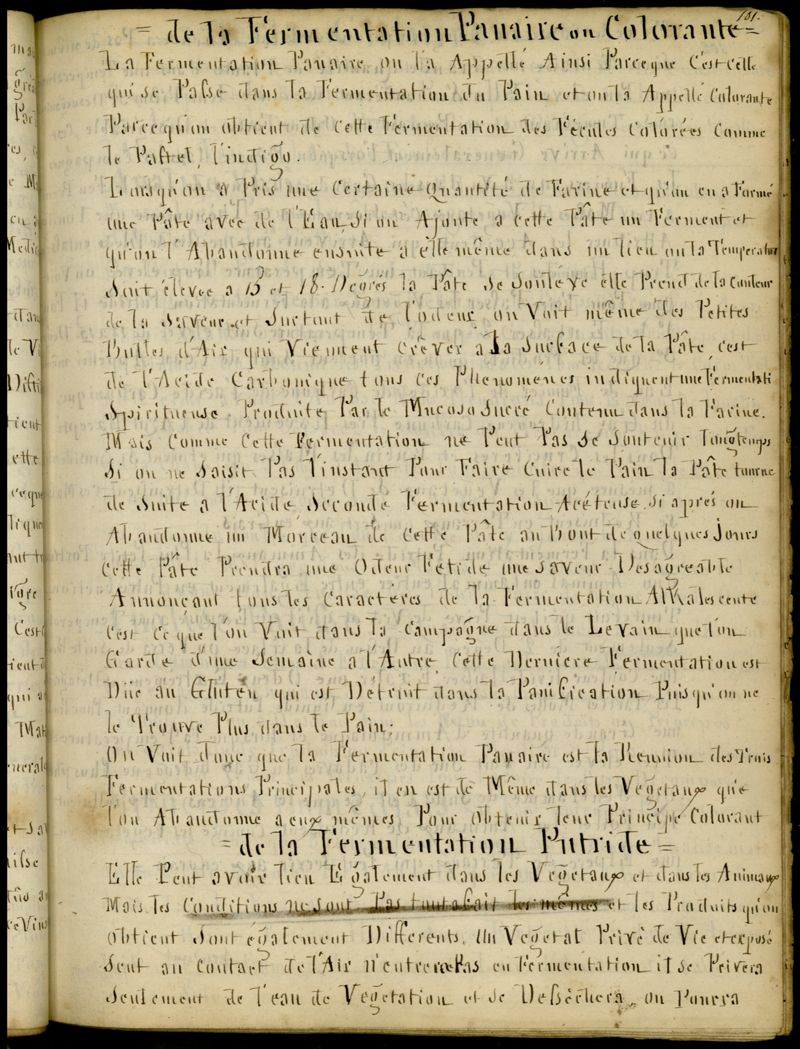 101.
= de la Fermentation Panaire ou Colorante =
La Fermentation Panaire on l'a Appellé Ainsi Parceque C'est Celle
qui se Passe dans la Fermentation du Pain et on la Appellé Colorante
Parcequ'on obtient de Cette Fermentation des Fécules Colorées Comme
le Pastel, l'indigo.
Lorsqu'on a Pris une Certaine Quantité de Farine et qu'on en a Formé
une Pâte avec de l'Eau, Si on Ajoute a cette Pâte un Ferment et
qu'on l'Abandonne ensuite a elle même dans un lieu ou la Temperatur
Soit élevée a 15 et 18 Degrés la Pâte Se Souleve elle Prend de la Couleur
de la Saveur et Surtout de l'odeur on Voit même des Petites
Bulles d'Air qui Viennent Crêver a la Surface de la Pâte, c'est
de l'Acide Carbonique tous ces Phenoménes indiquent une Fermentati
Spiritueuse Produite Par le Mucoso Sucré Contenu dans la Farine.
Mais Comme Cette Fermentation ne Peut Pas Se Soutenir longtemps
Si on ne Saisit Pas l'instant Pour Faire Cuire le Pain la Pâte tourne
de Suite a l'Acide Seconde Fermentation Acéteuse. Si aprés on
Abandonne un Morceau de Cette Pâte au Bout de quelques Jours
Cette Pâte Prendra une Odeur Fétide une Saveur Desagreable
Annonçant tous les Caractéres de la Fermentation Alkalescente
C'est Ce que l'on Voit dans la Campagne dans le Levain que l'on
Garde d'une Semaine a l'Autre Cette Derniere Fermentation est
Düe au Gluten qui est Détruit dans la Panification Puisqu'on ne
le Trouve Plus dans le Pain.
On Voit donc que la Fermentation Panaire est la Reunion des Trois
Fermentations Principales, il en est de Même dans les Vegetaux que
l'on Abandonne a eux mêmes Pour obtenir leur Principe Colorant
= de la Fermentation Putride =
Elle Peut avoir lieu Egalement dans les Vegetaux et dans les Animaux
Mais les Conditions ne sont Pas tout a fait les mêmes et les Produits qu'on
obtient Sont également Differents. Un Vegetal Privé de Vie et exposé
Seul au Contact de l'Air n'entrera Pas en Fermentation il Se Privera
Seulement de l'eau de Vegetation et Se Dessêchera, on Pourra